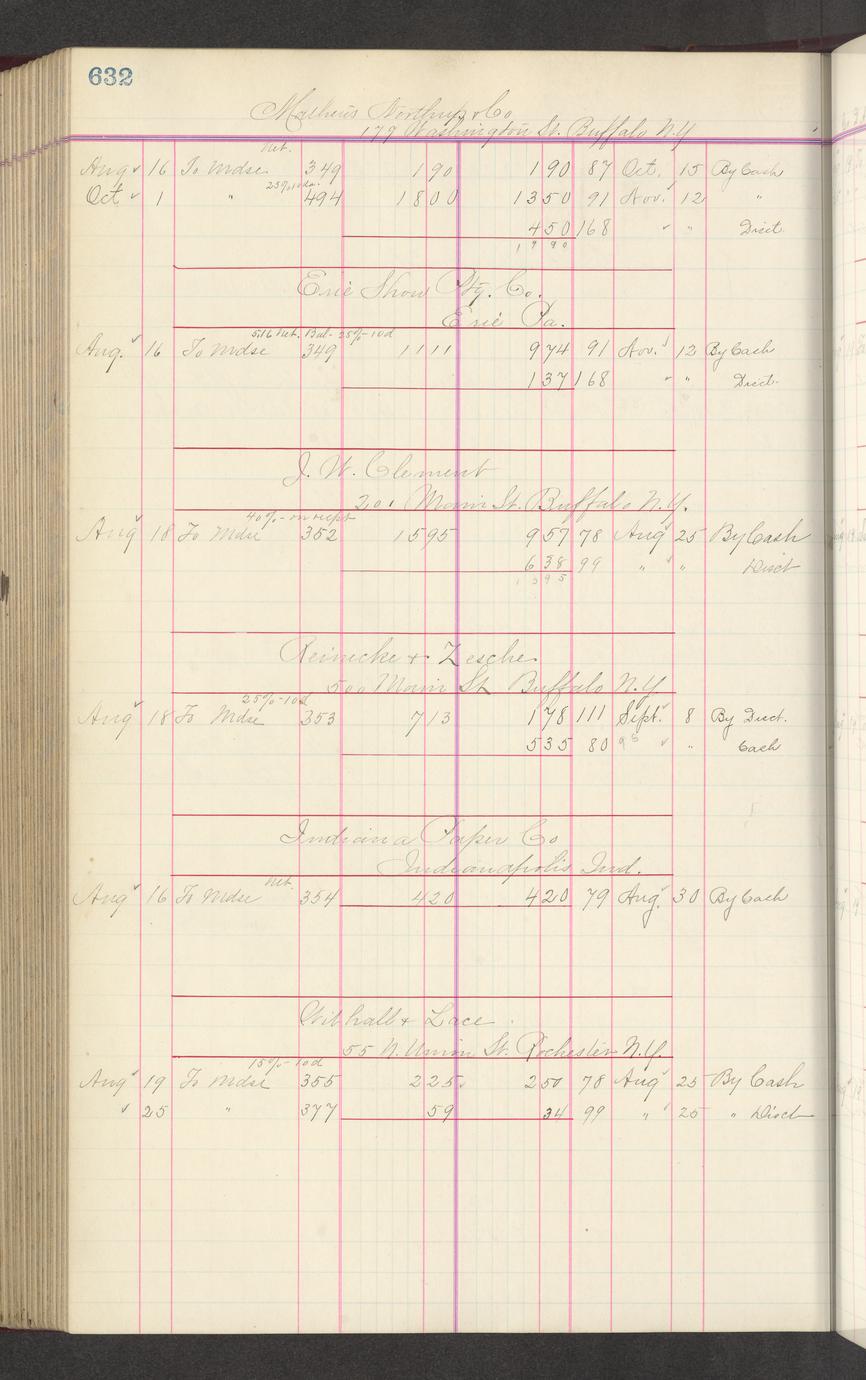 632
Mathews Northrup & Co
179 Washington St. Buffalo N.Y
Net.
Aug 16 To Mdse 349 190 190 87 Oct. 15 By Cash
25% 10da.
Oct 1 " 494 1800 1350 91 Nov. 12 "
450 168 " " Disct.
1990
Erie Show Ptg. Co.
Erie Pa.
5.16 Net. Bal- 25%-10d
Aug. 16 To Mdse 349 1111 974 91 Nov. 12 By Cash
137 168 " " Disct.
J. W. Clement
201 Main St. Buffalo N.Y.
40%- on recpt
Aug 18 To Mdse 352 1595 957 78 Aug 25 By Cash
638 99 " " Disct
1595
Reinecke & Zesche
500 Main St Buffalo N.Y
25%-10d
Aug 18 To Mdse 353 713 178 111 Sept. 8 By Disct.
535 80 95 " Cash
Indiana Paper Co
Indianapolis Ind.
Net.
Aug 16 To Mdse 354 420 420 79 Aug. 30 By Cash
& Lace
55 N. Union St. Rochester N.Y.
15%-10d
Aug 19 To Mdse 355 225 250 78 Aug 25 By Cash
" 25 " 377 59 34 99 " 25 " Disct